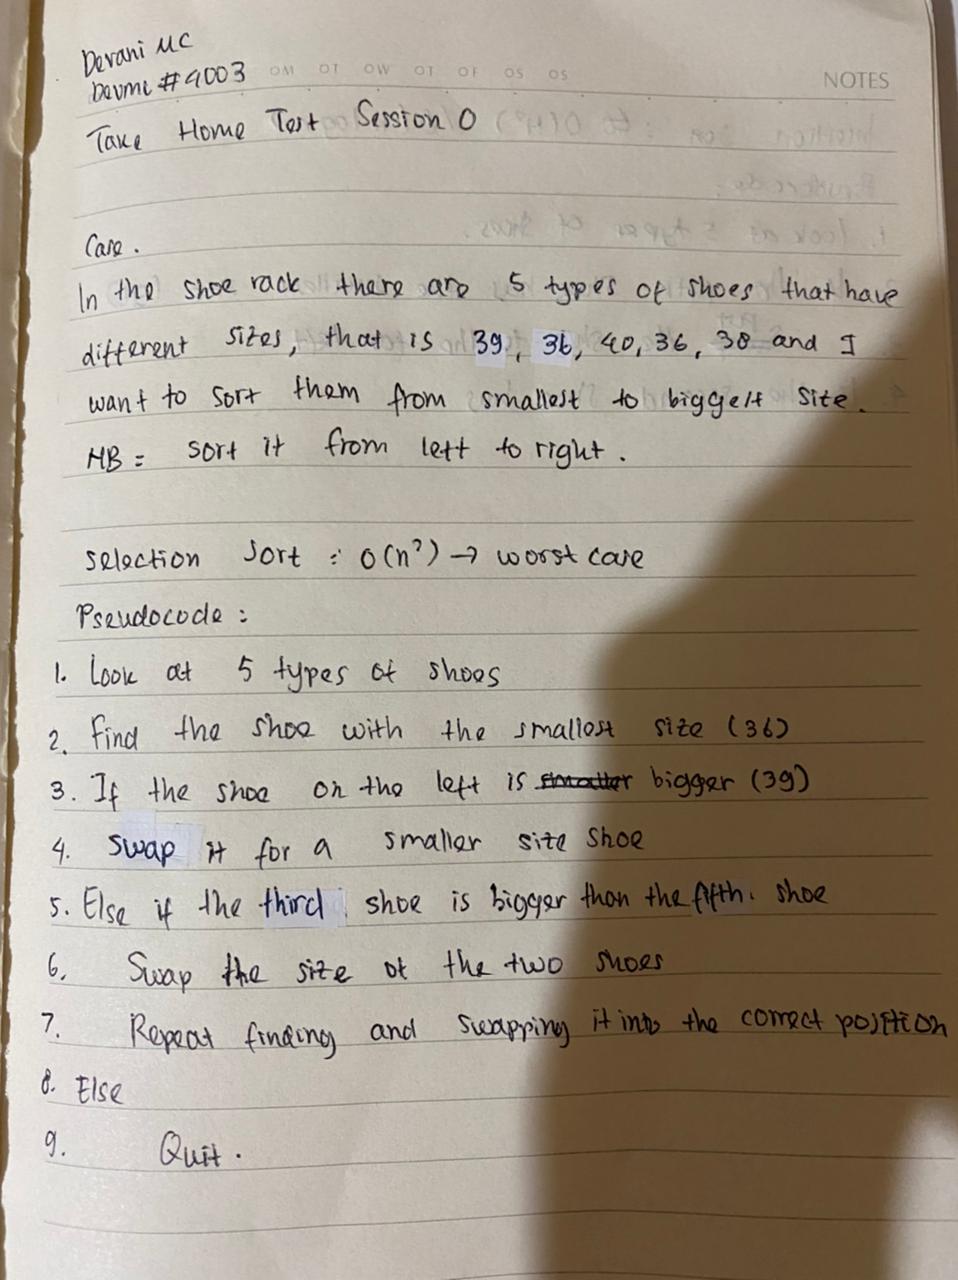 Devani MC
Devmc #4003
NOTES
Take Home Test Session 0
Case.
In the shoe rack there are 5 types of shoes that have
different sizes, that is 39, 36, 40, 36, 38 and I
want to sort them from smallest to biggest size.
NB = sort it from left to right.
Selection Sort : O(n²) → worst case
Pseudocode :
1. Look at 5 types of shoes
2. Find the shoe with the smallest size (36)
3. If the shoe on the left is smaller bigger (39)
4. Swap it for a smaller size shoe
5. Else if the third shoe is bigger than the fifth. shoe
6. Swap the size of the two shoes
7. Repeat finding and swapping it into the correct position
8. Else
9. Quit.